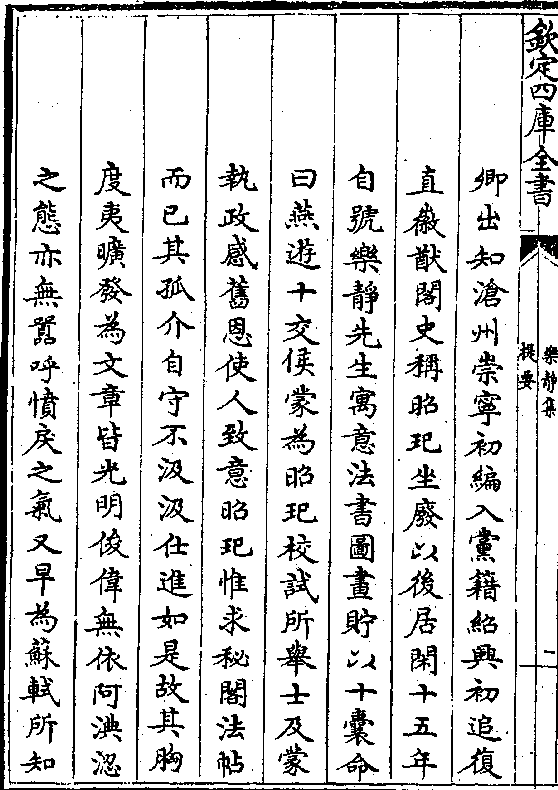 欽定四庫全書
樂静集
提要
二
卿出知滄州崇寧初編入黨籍紹興初追復
直徽猷閣史稱昭玘坐廢以後居閑十五年
自號樂静先生寓意法書圖畫貯以十囊命
曰燕遊十交侯蒙為昭玘校試所舉士及蒙
執政感舊恩使人致意昭玘惟求秘閣法帖
而已其孤介自守不汲汲仕進如是故其胸
度夷曠發為文章皆光明俊偉無依阿淟涊
之態亦無嚣呼憤戾之氣又早為蘇軾所知